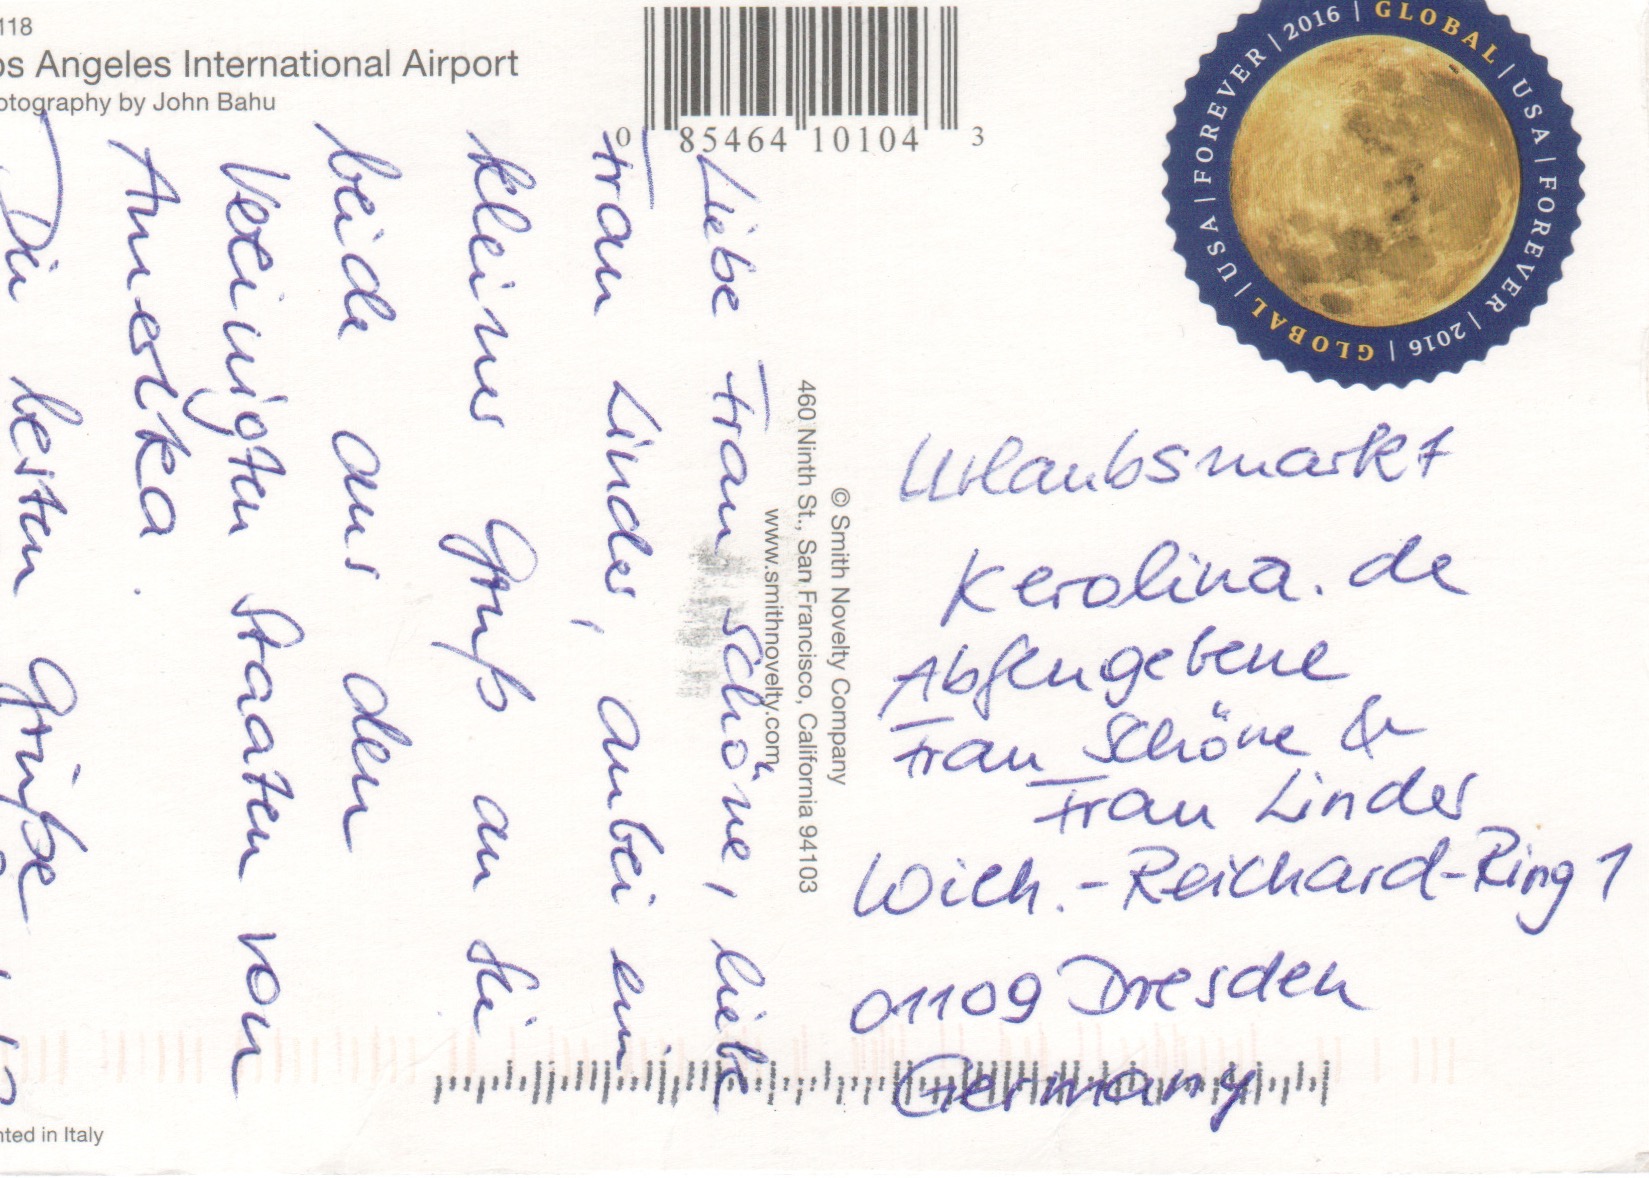 118
os Angeles International Airport
otography by John Bahu
0 85464 10104 3
GLOBAL | USA | FOREVER | 2016 | GLOBAL | USA | FOREVER | 2016 |
Liebe Frau Schöne, liebe
Frau Linder, anbei ein
kleiner Gruß an Sie
beide aus den
Vereinigten Staaten von
Amerika.
Die besten Grüße
© Smith Novelty Company
460 Ninth St., San Francisco, California 94103
www.smithnovelty.com
Urlaubsmarkt
Kerolina.de
Frau Schöne &
Frau Linder
Wilh.-Reichard-Ring 1
01109 Dresden
Germany
nted in Italy